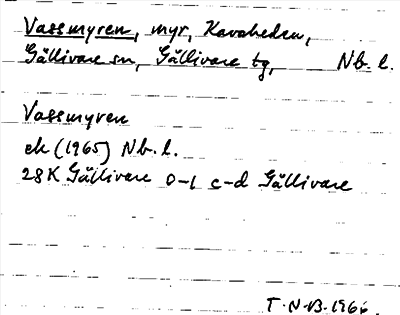 Vassmyren, myr, Kavaheden,
Gällivare sn, Gällivare tg, Nb. l.
Vassmyren
ek (1965) Nb. l.
28K Gällivare 0-1 c-d Gällivare
T·N·B·1966.